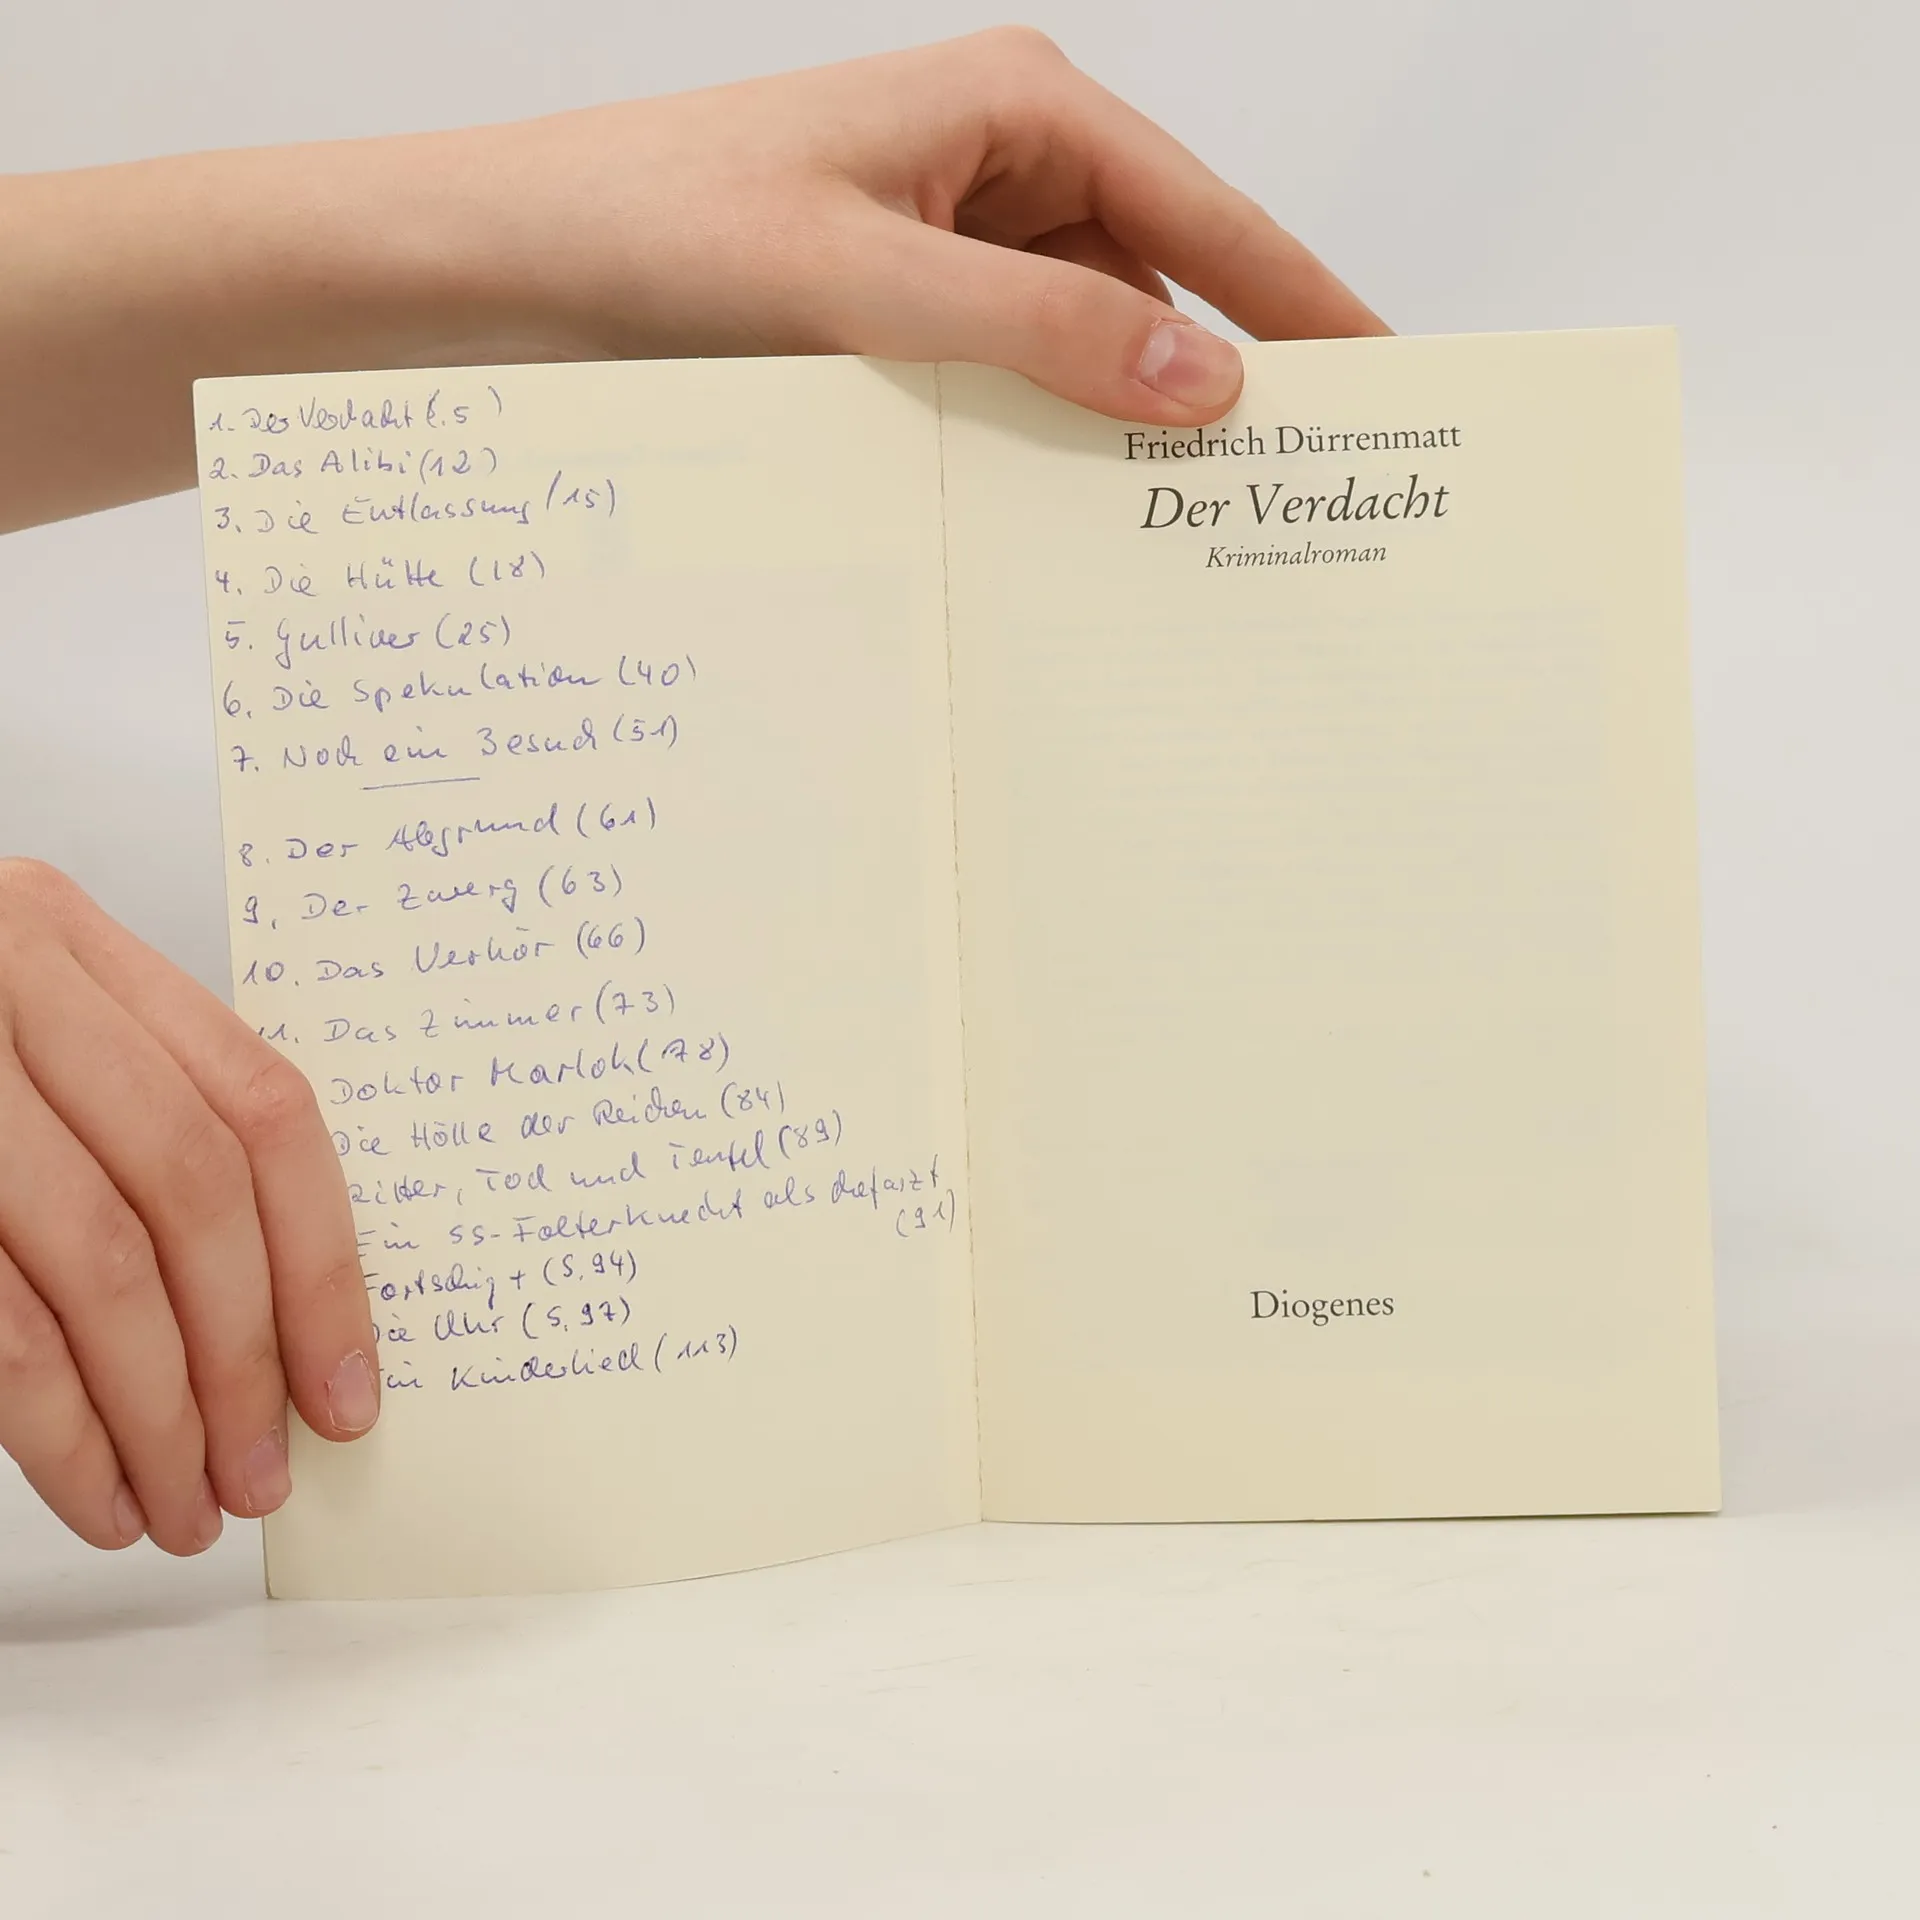 1. Der Verdacht (S. 5)
2. Das Alibi (12)
3. Die Entlassung (15)
4. Die Hütte (18)
5. Gulliver (25)
6. Die Spekulation (40)
7. Noch ein Besuch (51)
8. Der Abgrund (61)
9. Der Zwerg (63)
10. Das Verhör (66)
11. Das Zimmer (73)
Doktor Marlok (78)
Die Hölle der Reichen (84)
Ritter, Tod und Teufel (89)
Ein SS-Folterknecht als Chefarzt
(91)
Fortschig + (S. 94)
Die Uhr (S. 97)
Ein Kinderlied (113)
Friedrich Dürrenmatt
Der Verdacht
Kriminalroman
Diogenes